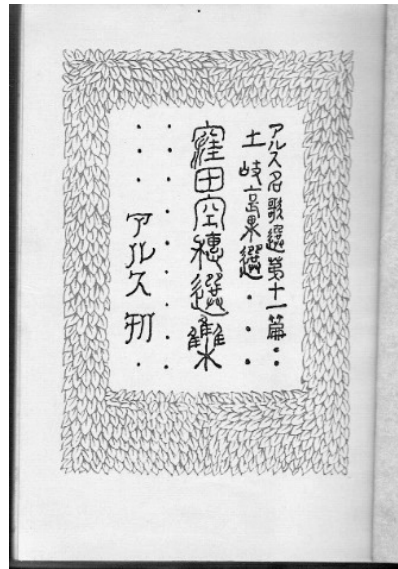 アルス名歌選第十一篇：：
土岐哀果選・・・
窪田空穂選集
・・・・・・・・
・・・アルス刊・